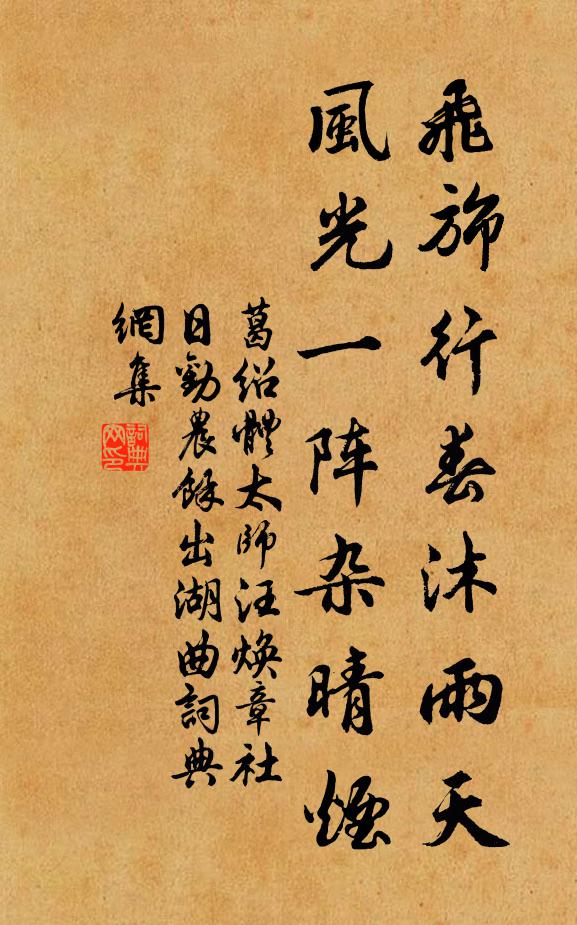 飛斾行春沐雨天
風光一阵杂晴煙
葛绍體太师汪焕章社
日勸農餘出湖曲詞典
網集
詞典網印